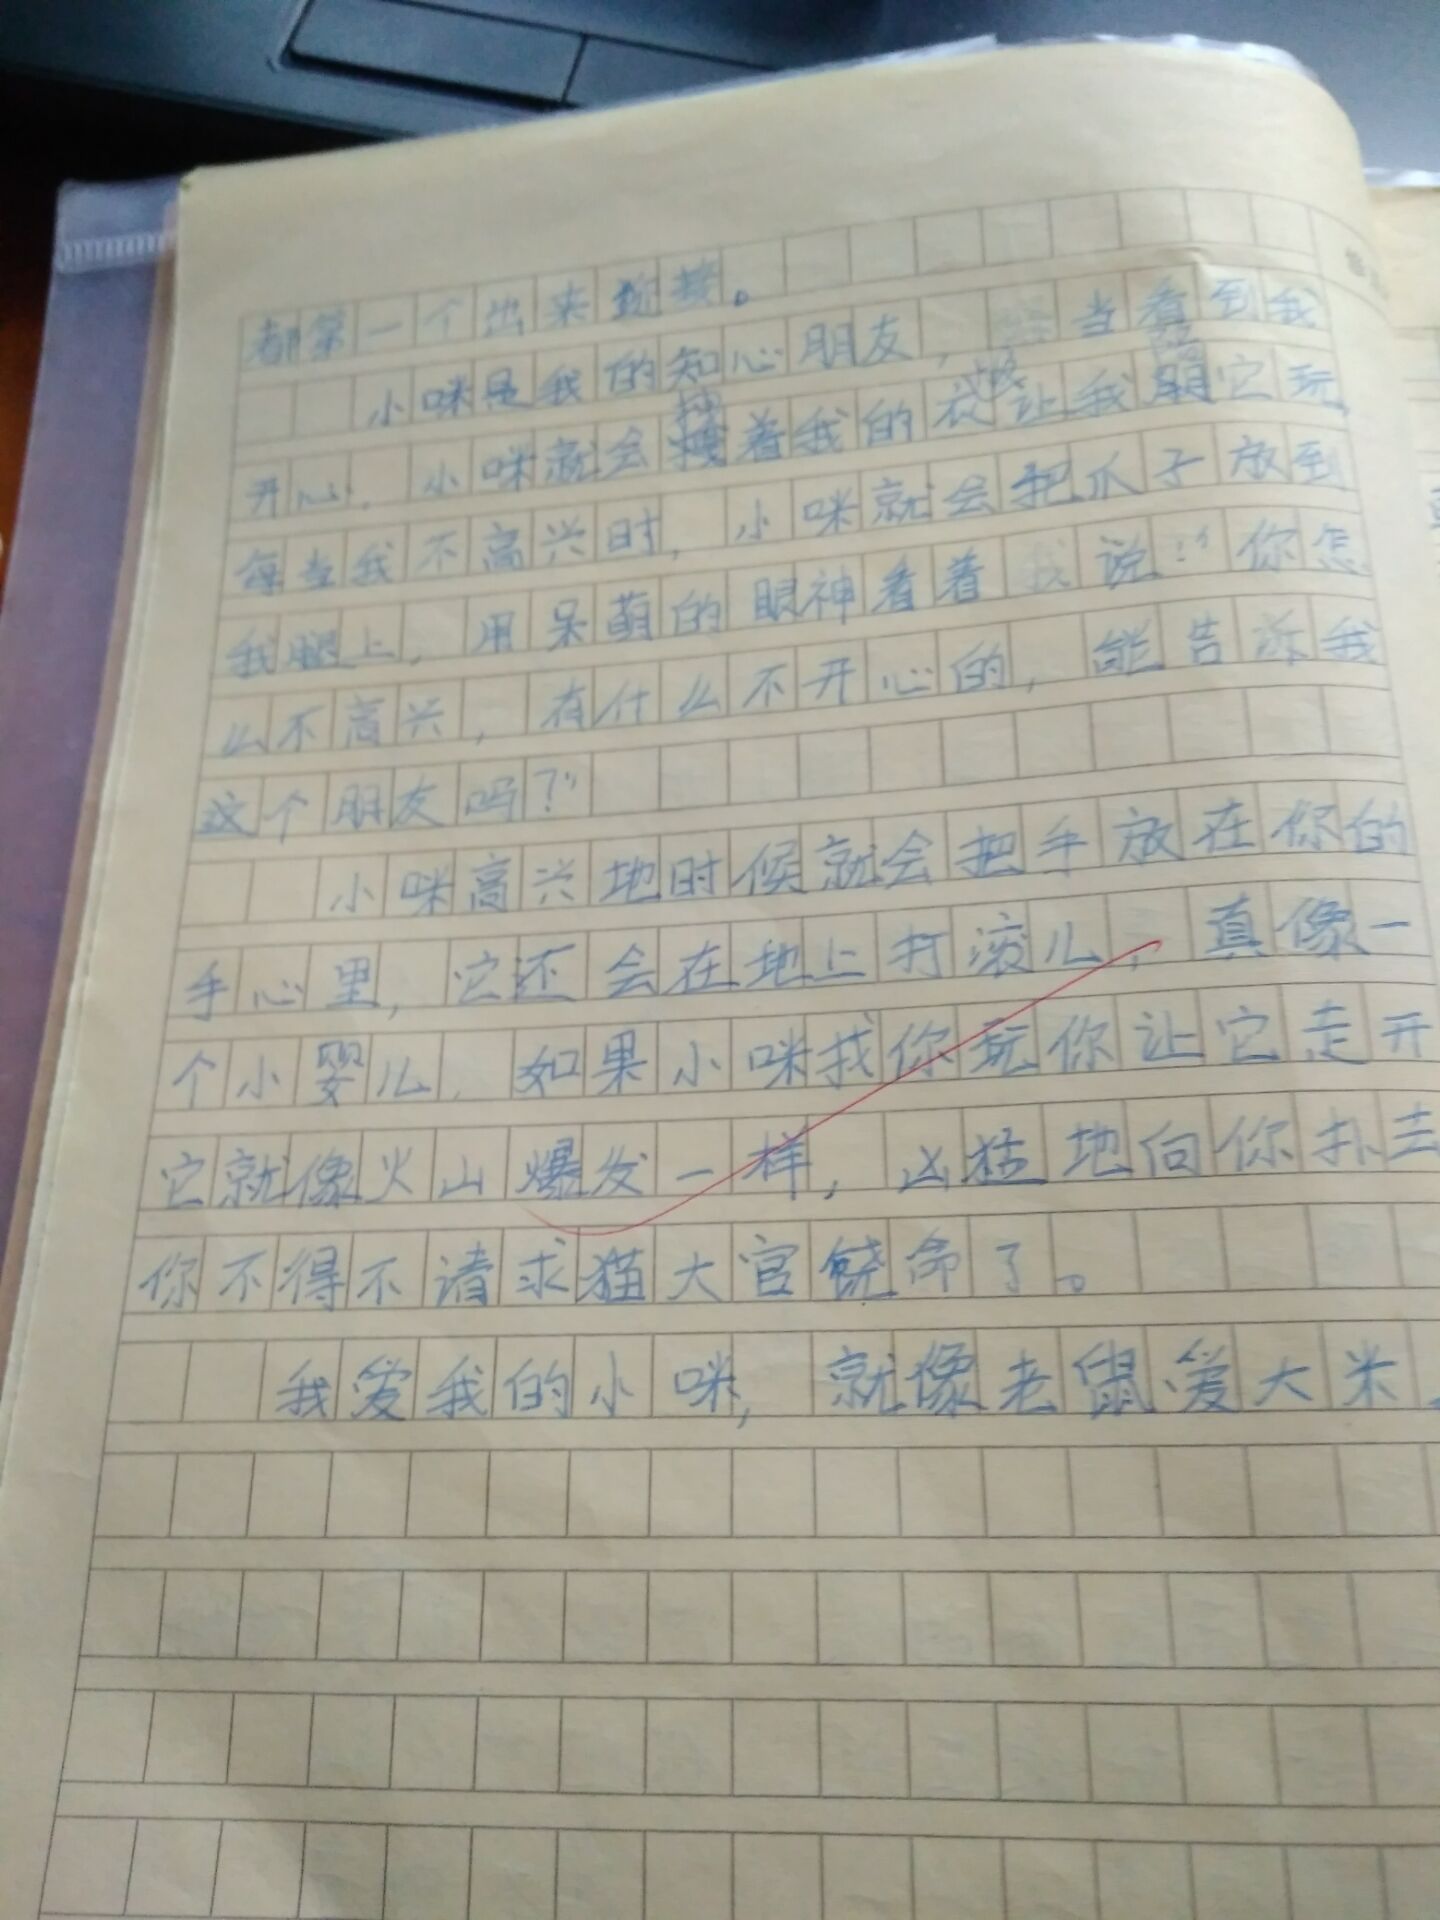 都第一个出来迎接。
小咪是我的知心朋友，当看到我
开心，小咪就会搂着我的衣让我跟它玩，
每当我不高兴时，小咪就会把爪子放到
我腿上，用呆萌的眼神看着我说：“你怎
么不高兴，有什么不开心的，能告诉我
这个朋友吗？”
小咪高兴地时候就会把手放在你的
手心里，它还会在地上打滚儿，真像一
个小婴儿，如果小咪找你玩你让它走开
它就像火山爆发一样，凶猛地向你扑去
你不得不请求猫大官饶命了。
我爱我的小咪，就像老鼠爱大米